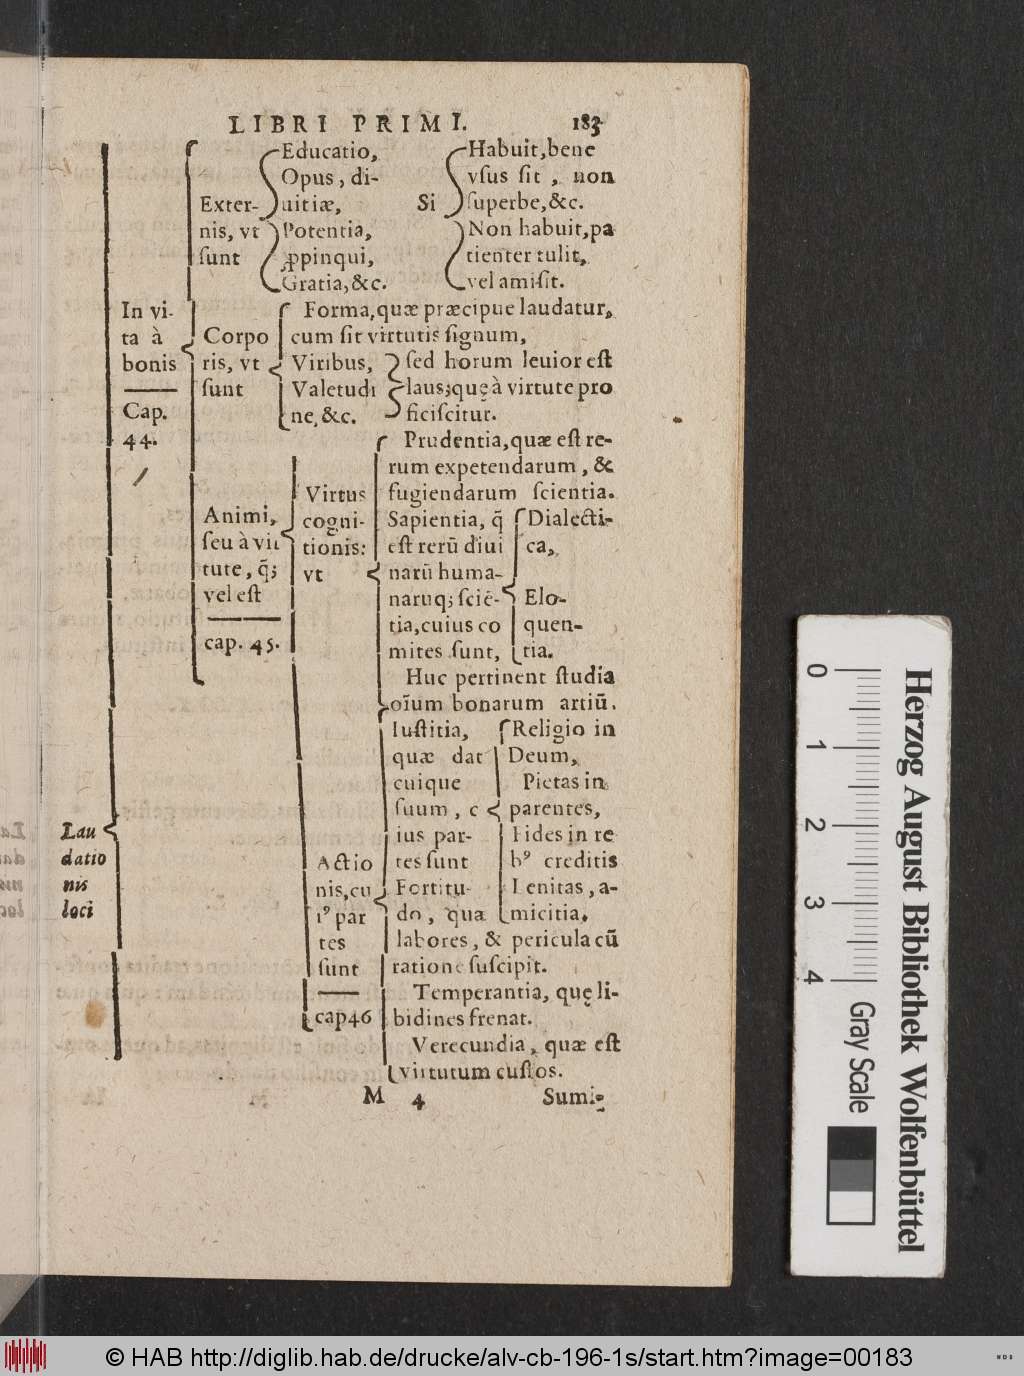 LIBRI PRIMI. 183
Laudatio
Lau
datio
nis
loci
In vi-
ta à
bonis
Cap.
44.
Exter-
nis, vt
sunt
Educatio,
Opus, di-
uitiæ,
Potentia,
ꝓpinqui,
Gratia, &c.
Si
Habuit, bene
vsus sit, non
superbe, &c.
Non habuit, pa
tienter tulit,
vel amisit.
Corpo
ris, vt
sunt
Forma, quæ præcipue laudatur,
cum sit virtutis signum,
Viribus,
Valetudi
ne, &c.
sed horum leuior est
laus; quę à virtute pro
ficiscitur.
Animi,
seu à vir
tute, q̃;
vel est
cap. 45.
Virtus
cogni-
tionis:
vt
Prudentia, quæ est re-
rum expetendarum, &
fugiendarum scientia.
Sapientia, q̃
est rerū diui
narū huma-
naruq; sciē-
tia, cuius co
mites sunt,
Dialecti-
ca,
Elo-
quen-
tia.
Huc pertinent studia
oīum bonarum artiū.
Actio
nis, cu
i⁹ par
tes
sunt
cap46
Iustitia,
quæ dat
cuique
suum, c
ius par-
tes sunt
Religio in
Deum,
Pietas in
parentes,
Fides in re
b⁹ creditis
Lenitas, a-
micitia.
Fortitu-
do, quæ
labores, & pericula cū
ratione suscipit.
Temperantia, quę li-
bidines frenat.
Verecundia, quæ est
virtutum custos.
M 4 Sumi-
0 1 2 3 4
Herzog August Bibliothek Wolfenbüttel
Gray Scale
© HAB http://diglib.hab.de/drucke/alv-cb-196-1s/start.htm?image=00183